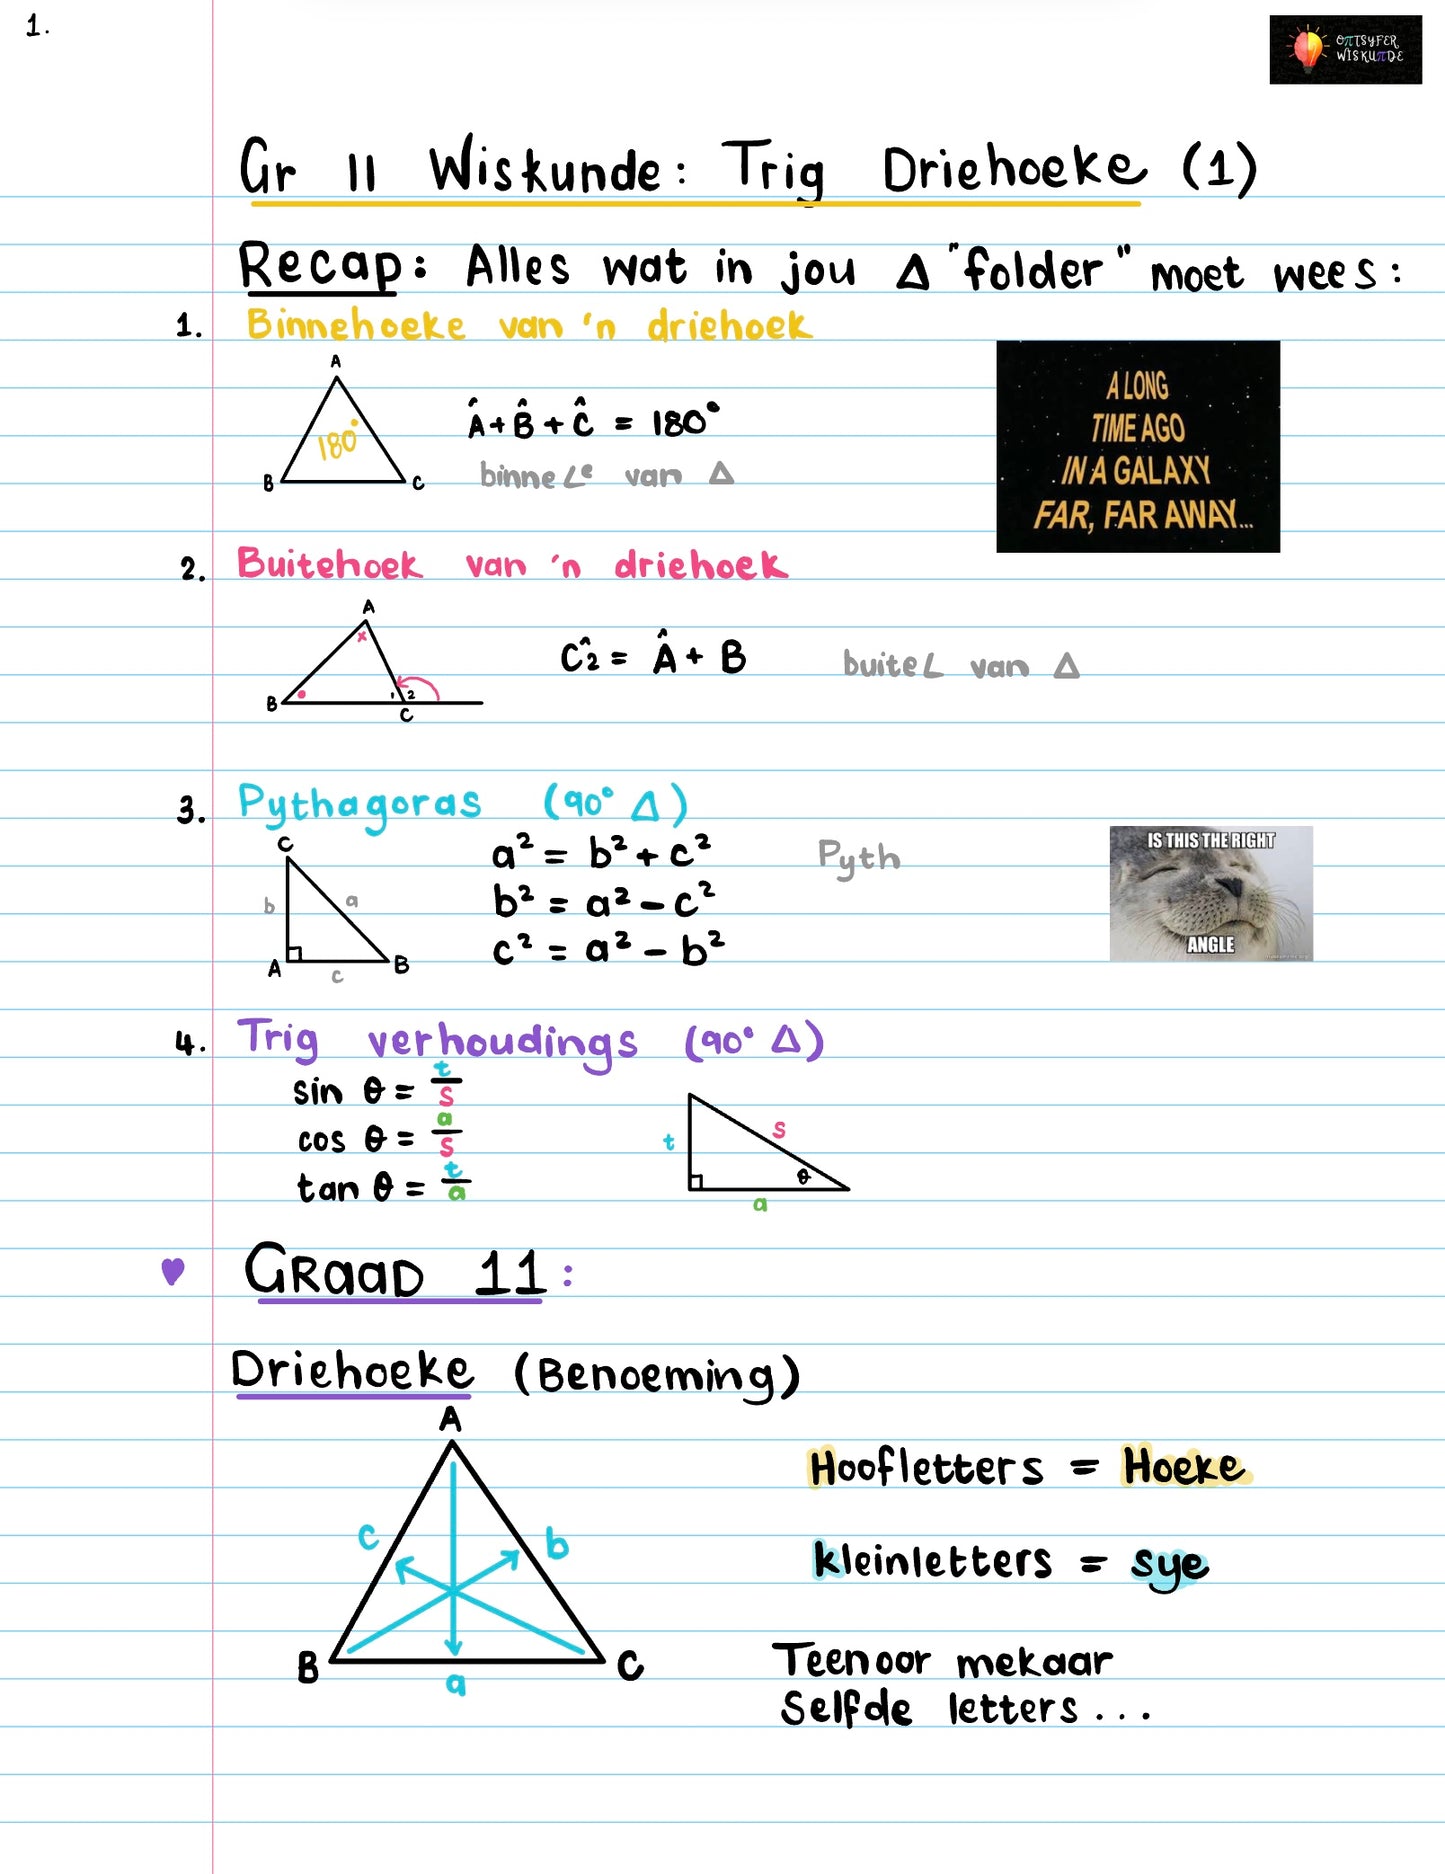 1.
OπTSYFER
WISKUπDE
Gr 11 Wiskunde: Trig Driehoeke (1)
Recap: Alles wat in jou Δ "folder" moet wees:
1. Binnehoeke van 'n driehoek
A
180°
B
C
Â + B̂ + Ĉ = 180°
binne∠ᵉ van Δ
A LONG
TIME AGO
IN A GALAXY
FAR, FAR AWAY...
2. Buitehoek van 'n driehoek
A
x
B
1 2
C
Ĉ2 = Â + B
buite∠ van Δ
3. Pythagoras (90° Δ)
C
b
a
A
c
B
a² = b² + c²
b² = a² - c²
c² = a² - b²
Pyth
IS THIS THE RIGHT
ANGLE
4. Trig verhoudings (90° Δ)
sin θ = t/s
cos θ = a/s
tan θ = t/a
t
s
θ
a
♥ GRaaD 11:
Driehoeke (Benoeming)
A
c
b
B
a
C
Hoofletters = Hoeke
kleinletters = sye
Teenoor mekaar
Selfde letters...